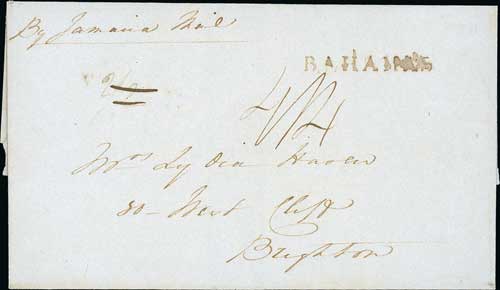 By Jamaica Mail
BAHAMAS
4/4
Mrs Lydia Haven
80 - West Cliff
Brighton